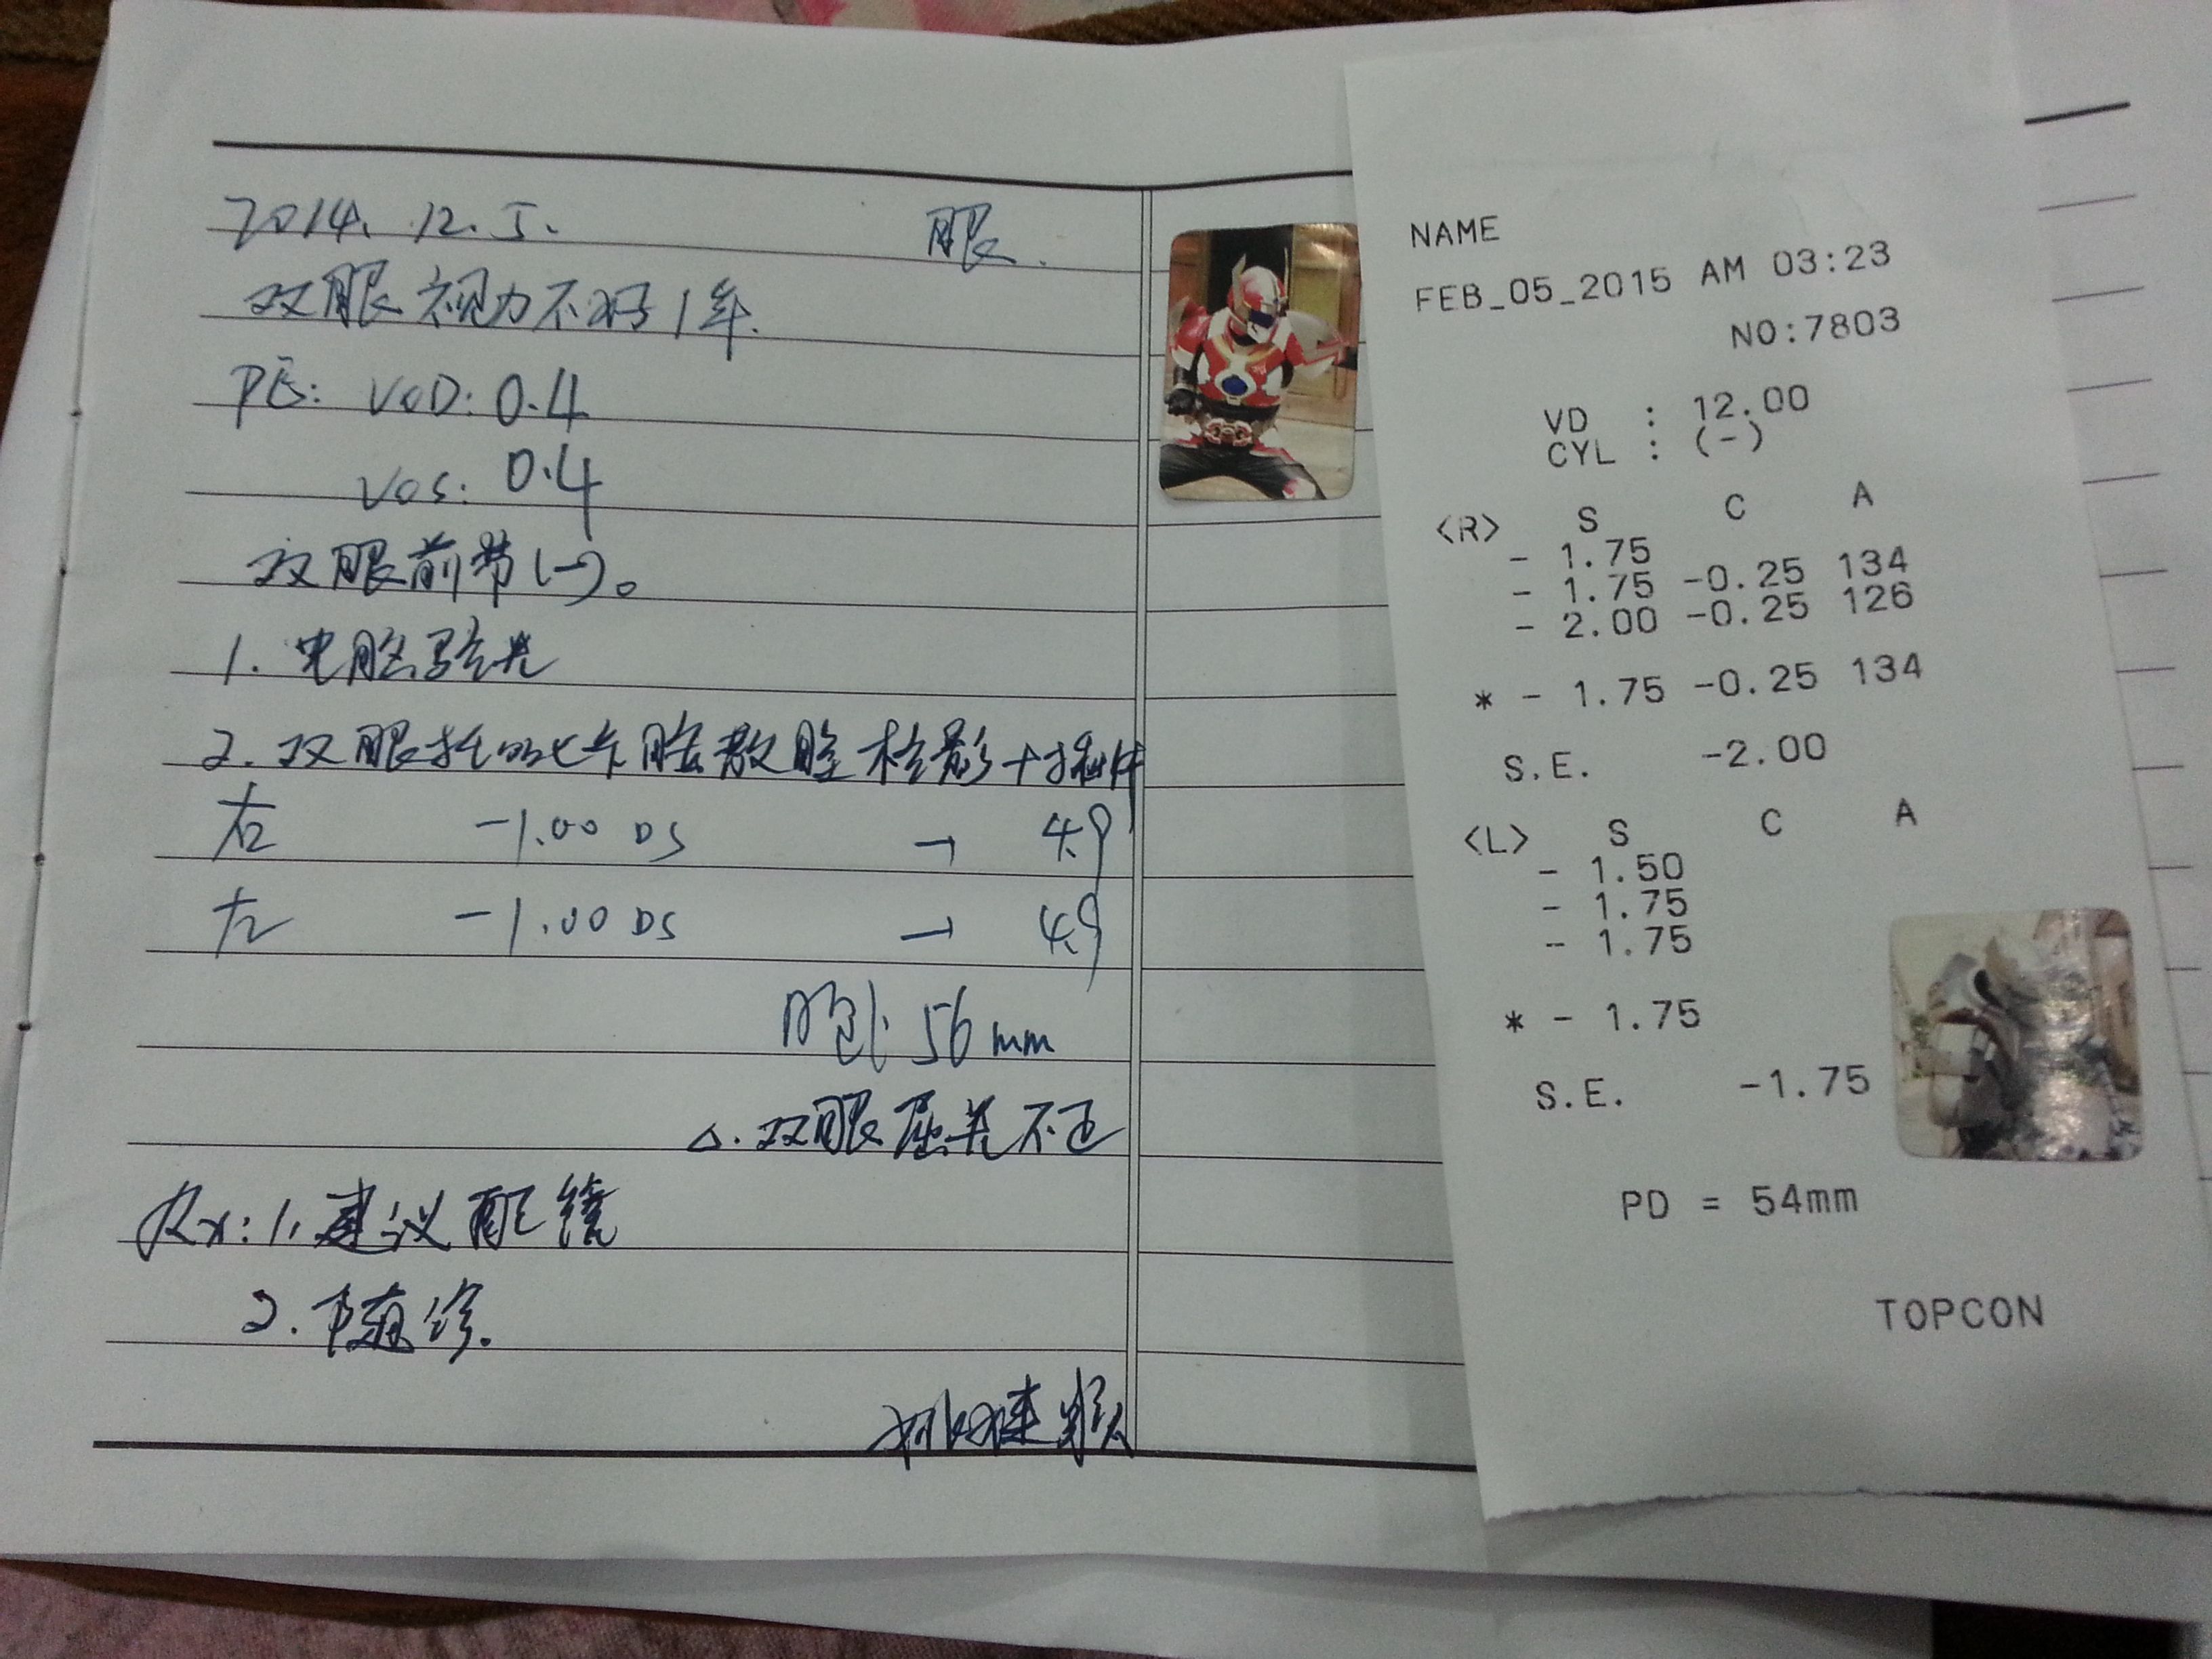 2014. 12. 5. 眼.
双眼视力不好1年.
PE: VOD: 0.4
VOS: 0.4
双眼前节(-)。
1. 电脑验光
2. 双眼托吡卡胺散瞳检影+插片
右 -1.00 DS → 4.9
左 -1.00 DS → 4.9
瞳距: 56mm
△. 双眼屈光不正
Rx: 1. 建议配镜
2. 随诊.
NAME
FEB_05_2015 AM 03:23
NO:7803
VD : 12.00
CYL : (-)
<R> S C A
- 1.75
- 1.75 -0.25 134
- 2.00 -0.25 126
* - 1.75 -0.25 134
S.E. -2.00
<L> S C A
- 1.50
- 1.75
- 1.75
* - 1.75
S.E. -1.75
PD = 54mm
TOPCON